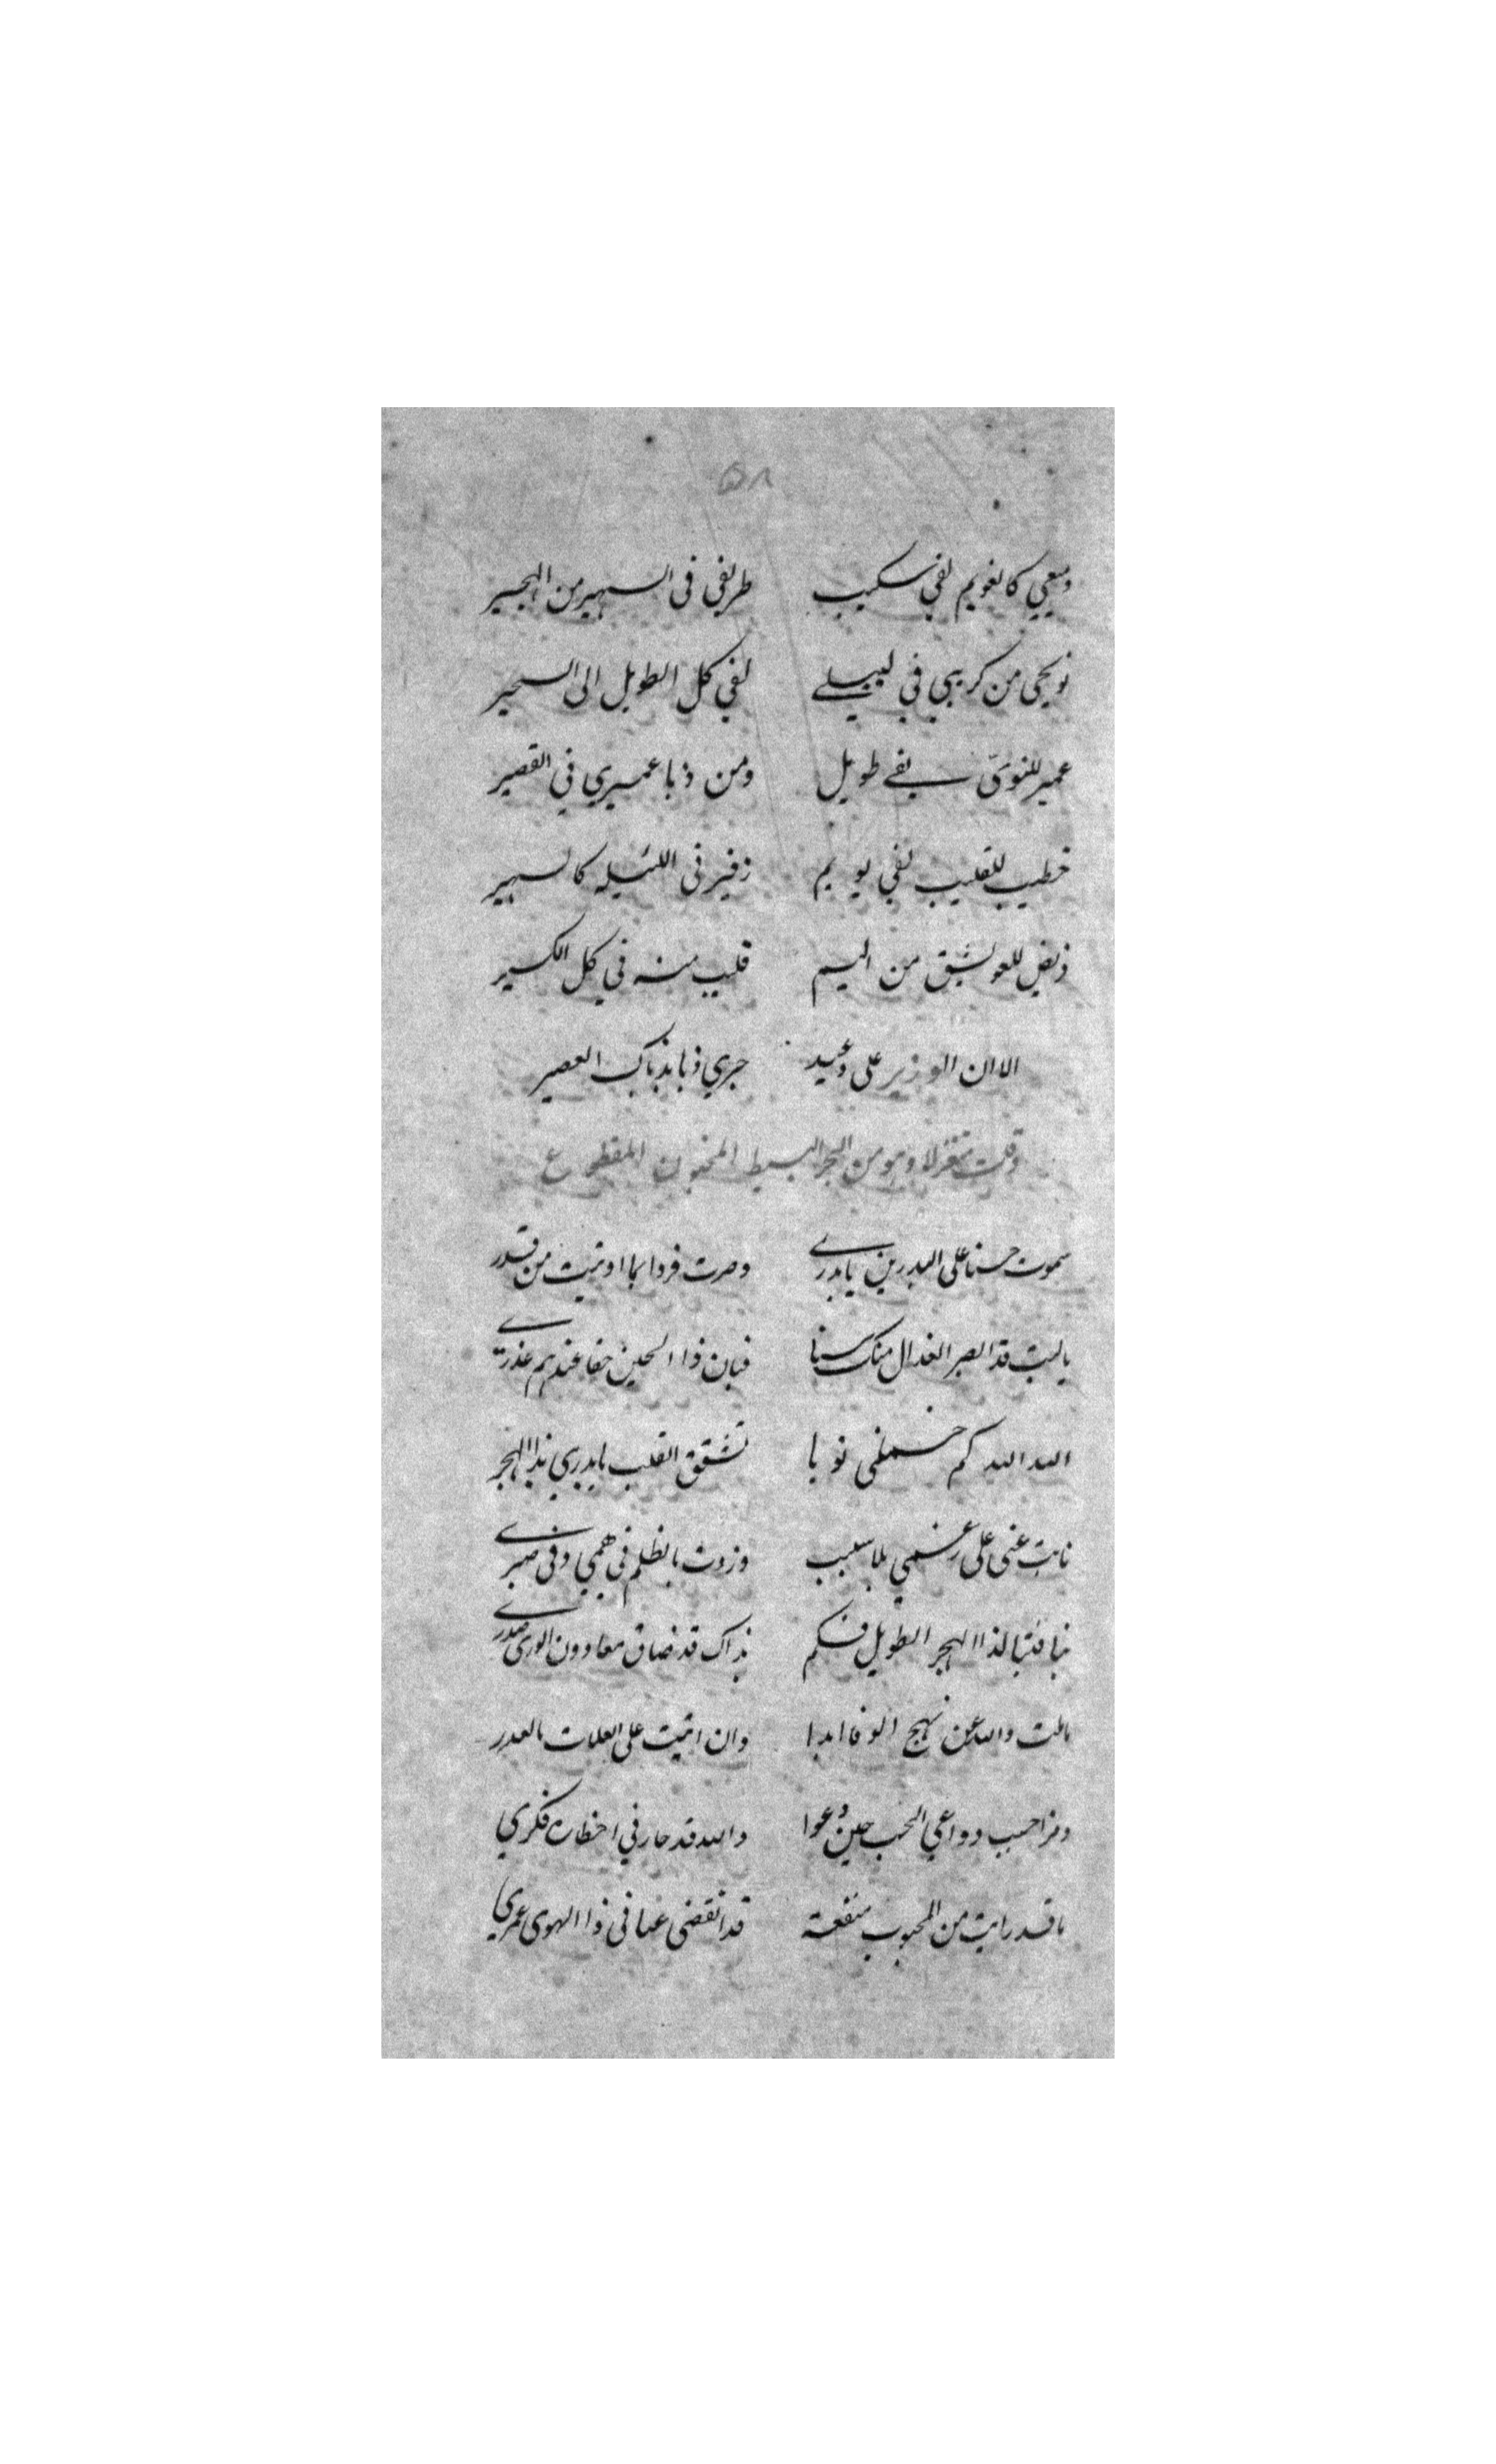 ٥٨
دميعي كالغويم لفي سكيب طريفي في السهير من الهجير
نويحي من كريبي في لييلي لفي كل الطويل الى السحير
عمير للنوى يقي طويل ومن ذيا عميري في القصير
خطيب للقليب لفي يويم زفير في اللئيله كالسهير
للعويشق من اليم قليب منه في كل الكسير
الا ان الوزير على وعيد جرى ذيا بذياك العصير
وقلت متغزلا وهو من البحر البسيط المخبون المقطوع
سموت حسنا على البدرين يا بدري وصرت فردا بما اوتيت من قدر
يا ليت قد ابصر العذال منك سنا فبان ذا الحين حقا عندهم عذري
الله الله كم نوبا تشقق القلب يا بدري بذا الهجر
نايت عني على رغمي بلا سبب وزدت بالظلم في همي وفي صبري
لذا الهجر الطويل فكم بذاك قد ضاق معاودون الورى صدري
ما ملت والله عن نهج الوفا ابدا وان اتيت على العلات بالعدر
ومذ احيب دواعي الحب حين دعوا والله قد حار في اخطاره فكري
ما قد رايت من المحبوب منفعة قد انقضى عبثا في ذا الهوى عمري